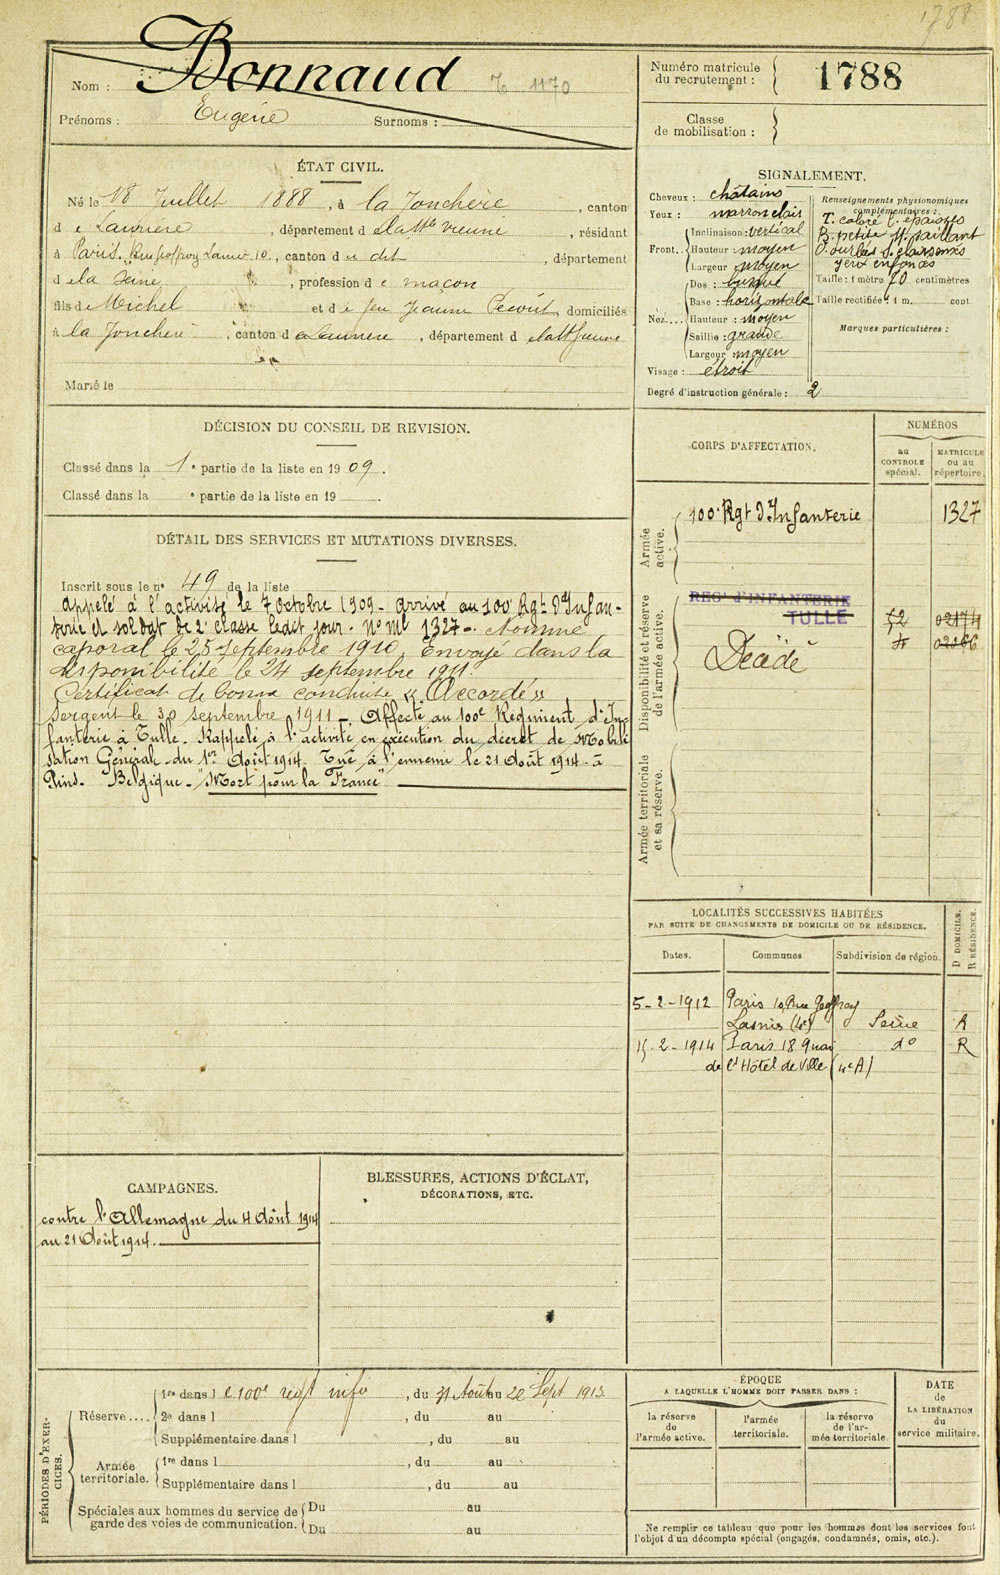 1788
Nom : Bonnaud 1170
Prénoms : Eugène Surnoms :
Numéro matricule
du recrutement : 1788
Classe
de mobilisation :
ÉTAT CIVIL.
Né le 18 Juillet 1888, à la Jonchère, canton
d e Laurière, département d e la Hte Vienne, résidant
à Paris, Rue Geoffroy Lasnier 10, canton d u dit, département
d e la Seine, profession d e maçon
fils de Michel et d e feu Jeanne domiciliés
à la Jonchère, canton d e Laurière, département d e la Hte Vienne
Marié le
SIGNALEMENT.
Cheveux : châtains
Yeux : marron clair
Front. Inclinaison : vertical
Hauteur : moyen
Largeur : moyen
Nez. Dos : busqué
Base : horizontale
Hauteur : moyen
Saillie : grande
Largeur : moyen
Visage : étroit
Degré d'instruction générale : 2
Renseignements physionomiques
complémentaires :
T. coloré L. épaisses
B. petite M. saillant
O. ourlés S. clairsemés
yeux enfoncés
Taille : 1 mètre 70 centimètres
Taille rectifiée : 1 m. cent
Marques particulières :
DÉCISION DU CONSEIL DE REVISION.
Classé dans la 1e partie de la liste en 1909.
Classé dans la e partie de la liste en 19 .
DÉTAIL DES SERVICES ET MUTATIONS DIVERSES.
Inscrit sous le n° 49 de la liste
appelé à l'activité le 7 octobre 1909 - arrivé au 100e Rgt d'Infan-
terie et soldat de 2e classe ledit jour. N° Mle 1327 - Nommé
caporal le 25 septembre 1910. Envoyé dans la
disponibilité le 24 septembre 1911.
Certificat de bonne conduite "Accordé"
Sergent le 30 septembre 1911 - Affecté au 100e Régiment d'In-
fanterie à Tulle. Rappelé à l'activité en exécution du décret de Mobili-
sation Générale du 1er Août 1914. Tué à l'ennemi le 21 Août 1914 à
Belgique - "Mort pour la France"
CORPS D'AFFECTATION.
NUMÉROS
au
CONTROLE
spécial.
MATRICULE
ou au
répertoire.
Armée
active.
100e Rgt d'Infanterie 1327
Disponibilité et réserve
de l'armée active.
REGt d'INFANTERIE
TULLE
Décédé
Armée territoriale
et sa réserve.
LOCALITÉS SUCCESSIVES HABITÉES
PAR SUITE DE CHANGEMENTS DE DOMICILE OU DE RÉSIDENCE.
Dates. Communes Subdivision de région. D DOMICILE. R RÉSIDENCE.
5-2-1912 Paris 10, Rue Geoffroy
Lasnier (4e) Seine R
15-2-1914 Paris 18 Quai do R
de l'Hôtel de Ville (4e A)
CAMPAGNES.
contre l'Allemagne du 4 Août 1914
au 21 Août 1914.
BLESSURES, ACTIONS D'ÉCLAT,
DÉCORATIONS, ETC.
PÉRIODES D'EXER-
CICES.
Réserve.... 1re dans l e 100e régt infie, du 31 Août au 20 Sept 1913
2e dans l , du au
Supplémentaire dans l , du au
Armée
territoriale. 1re dans l , du au
Supplémentaire dans l , du au
Spéciales aux hommes du service de
garde des voies de communication. Du au
Du au
ÉPOQUE
A LAQUELLE L'HOMME DOIT PASSER DANS :
la réserve
de
l'armée active.
l'armée
territoriale.
la réserve
de l'ar-
mée territoriale.
DATE
de
LA LIBÉRATION
du
service militaire.
Ne remplir ce tableau que pour les hommes dont les services font
l'objet d'un décompte spécial (engagés, condamnés, omis, etc.).